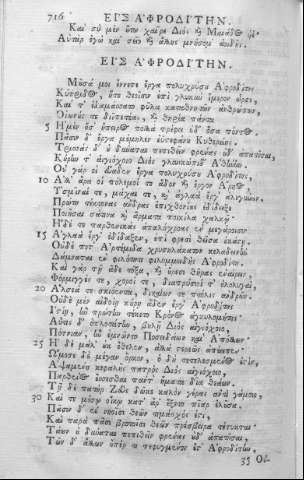 716 ΕΙΣ ΑΦΡΟΔΙΤΗΝ.
Καὶ σὺ μὲν οὕτω χαῖρε Διὸς καὶ Μαιάδος υἱέ·
Αὐτὰρ ἐγὼ καὶ σεῖο καὶ ἄλλης μνήσομ' ἀοιδῆς.
ΕΙΣ ΑΦΡΟΔΙΤΗΝ.
Μοῦσά μοι ἔννεπε ἔργα πολυχρύσου Ἀφροδίτης
Κύπριδος, ἥτε θεοῖσιν ἐπὶ γλυκὺν ἵμερον ὦρσε,
Καί τ' ἐδαμάσσατο φῦλα καταθνητῶν ἀνθρώπων,
Οἰωνούς τε διιπετέας, καὶ θηρία πάντα
5 Ἠμὲν ὅσ' ἤπειρος πολλὰ τρέφει ἠδ' ὅσα πόντος.
Πᾶσιν δ' ἔργα μέμηλεν ἐϋστεφάνου Κυθερείης.
Τρισσὰς δ' οὐ δύναται πεπιθεῖν φρένας οὐδ' ἀπατῆσαι,
Κούρην τ' αἰγιόχοιο Διὸς γλαυκώπιδ' Ἀθήνην.
Οὐ γάρ οἱ εὔαδεν ἔργα πολυχρύσου Ἀφροδίτης,
10 Ἀλλ' ἄρα οἱ πόλεμοί τε ἅδον καὶ ἔργον Ἄρηος,
Ὑσμῖναί τε, μάχαι τε, καὶ ἀγλαὰ ἔργ' ἀλεγύνειν.
Πρώτη τέκτονας ἄνδρας ἐπιχθονίους ἐδίδαξε
Ποιῆσαι σάτινα καὶ ἅρματα ποικίλα χαλκῷ·
Ἡ δέ τε παρθενικὰς ἁπαλόχροας ἐν μεγάροισιν
15 Ἀγλαὰ ἔργ' ἐδίδαξεν, ἐπὶ φρεσὶ θεῖσα ἑκάστῃ.
Οὐδέ ποτ' Ἀρτέμιδα χρυσηλάκατον κελαδεινὴν
Δάμναται ἐν φιλότητι φιλομμειδὴς Ἀφροδίτη,
Καὶ γὰρ τῇ ἅδε τόξα, καὶ οὔρεσι θῆρας ἐναίρειν,
Φόρμιγγές τε, χοροί τε, διαπρύσιοί τ' ὀλολυγαὶ,
20 Ἄλσεά τε σκιόεντα, δικαίων τε πόλις ἀνδρῶν.
Οὐδὲ μὲν αἰδοίῃ κούρῃ ἅδεν ἔργ' Ἀφροδίτης
Ἱστίῃ, ἣν πρώτην τέκετο Κρόνος ἀγκυλομήτης·
Αὖτις δ' ὁπλοτάτην, βουλῇ Διὸς αἰγιόχοιο,
Πότνιαν, ἣν ἐμνῶντο Ποσειδάων καὶ Ἀπόλλων·
25 Ἡ δὲ μάλ' οὐκ ἔθελεν, ἀλλὰ στερεῶς ἀπέειπεν·
Ὤμοσε δὲ μέγαν ὅρκον, ὃ δὴ τετελεσμένος ἐστὶν,
Ἁψαμένη κεφαλῆς πατρὸς Διὸς αἰγιόχοιο,
Παρθένος ἔσσεσθαι πάντ' ἤματα δῖα θεάων.
Τῇ δὲ πατὴρ Ζεὺς δῶκε καλὸν γέρας ἀντὶ γάμοιο,
30 Καί τε μέσῳ οἴκῳ κατ' ἄρ' ἕζετο πῖαρ ἑλοῦσα.
Πᾶσιν δ' ἐν νηοῖσι θεῶν τιμάοχός ἐστι,
Καὶ παρὰ πᾶσι βροτοῖσι θεῶν πρέσβειρα τέτυκται·
Τάων οὐ δύναται πεπιθεῖν φρένας οὐδ' ἀπατῆσαι,
Τῶν δ' ἄλλων οὔπερ τι πεφυγμένον ἔστ' Ἀφροδίτην,
35 Οὔ-